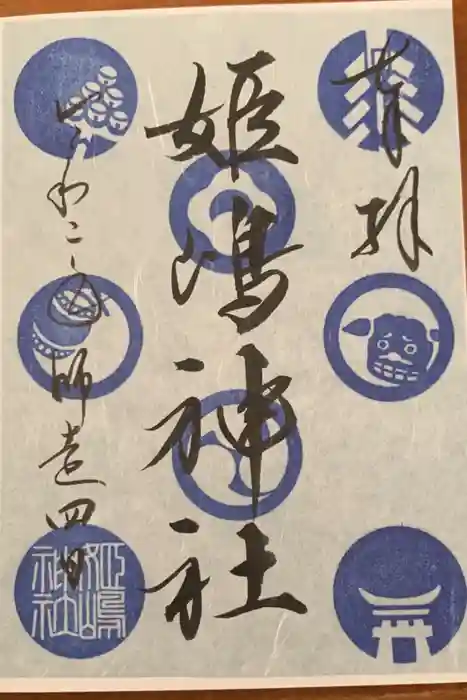 奉拝
姫嶋神社
令和二年師走四日
姫嶋神社